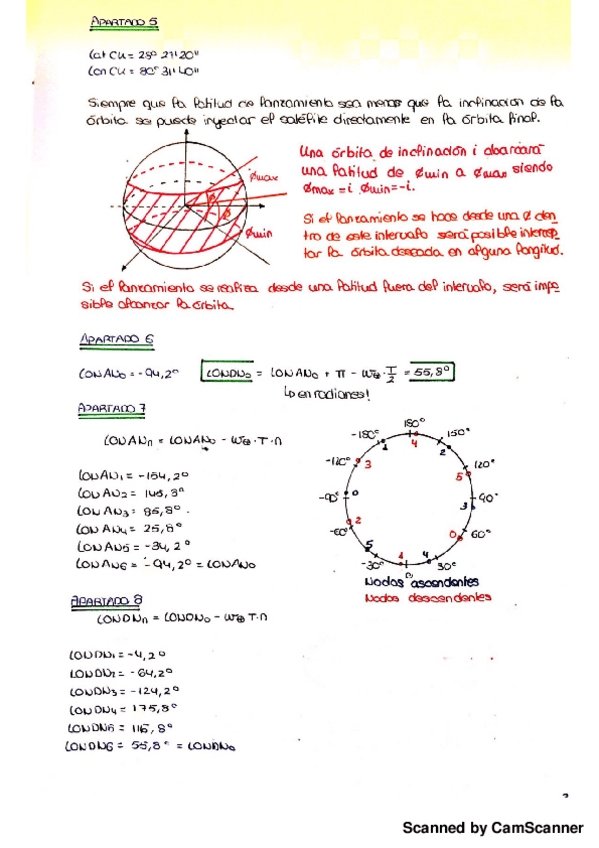 APARTADO 5
Lat CU = 28° 27' 20"
Lon CU = 80° 31' 40"
Siempre que la latitud de lanzamiento sea menor que la inclinación de la
órbita se puede inyectar el satélite directamente en la órbita final.
Una órbita de inclinación i alcanzará
una latitud de ømin a ømax siendo
ømax = i ømin = -i.
ømax
ømin
Si el lanzamiento se hace desde una ø den
tro de este intervalo será posible intercep
tar la órbita deseada en alguna longitud.
Si el lanzamiento se realiza desde una latitud fuera del intervalo, será impo
sible alcanzar la órbita.
APARTADO 6
LONAN₀ = -94,2° LONDN₀ = LONAN₀ + π - ω⊕ · T/2 = 55,8°
↳ en radianes!
APARTADO 7
LONANn = LONAN₀ - ω⊕ · T · n
LONAN₁ = -154,2°
LONAN₂ = 145,8°
LONAN₃ = 85,8°
LONAN₄ = 25,8°
LONAN₅ = -34,2°
LONAN₆ = -94,2° = LONAN₀
180°
-180°
150°
1
4
2
-120°
3
120°
5
-90°
0
90°
3
2
-60°
0
60°
5
1
4
-30°
0°
30°
Nodos ascendentes
Nodos descendentes
APARTADO 8
LONDNn = LONDN₀ - ω⊕ T · n
LONDN₁ = -4,2°
LONDN₂ = -64,2°
LONDN₃ = -124,2°
LONDN₄ = 175,8°
LONDN₅ = 115,8°
LONDN₆ = 55,8° = LONDN₀
Scanned by CamScanner